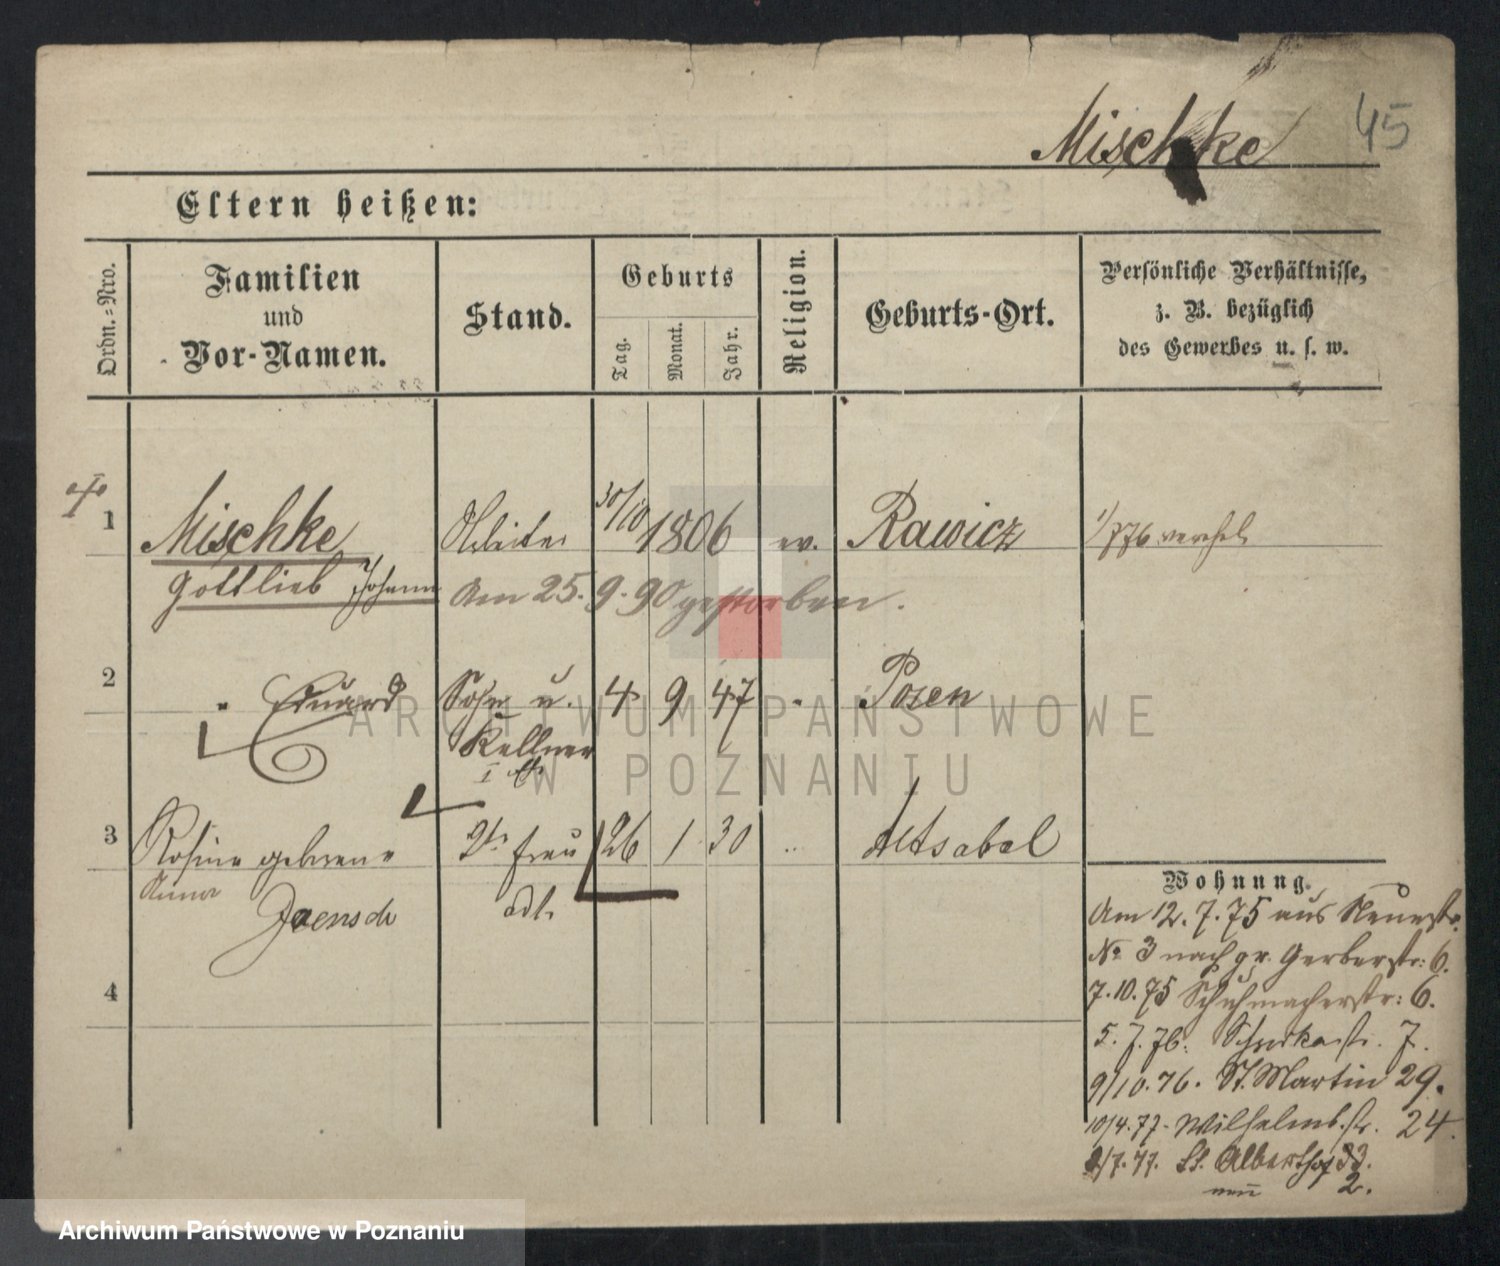 Mischke
45
Eltern heißen:
Ordn.-Nro.
Familien
und
Vor-Namen.
Stand.
Geburts
Tag.
Monat.
Jahr.
Religion.
Geburts-Ort.
Persönliche Verhältnisse,
z. B. bezüglich
des Gewerbes u. s. w.
1 Mischke 30/10 1806 ev. Rawicz
Gottlieb Johann Am 25.9.90 gestorben.
2 " Eduard Sohn u. 4 9 47 " Posen
Kellner
3 Rosine geborene Frau 26 1 30 " Altsabel
Anna
Jaensch
4
Wohnung.
Am 12.7.75 aus Neuestr.
No 3 nach gr. Gerberstr: 6.
7.10.75 Schuhmacherstr: 6.
5.7.76. 7.
9/10.76. St. Martin 29.
10/4.77. Wilhelmsstr. 24.
2/7.77. St. Adalbert 33.
neu 2.
ARCHIWUM PAŃSTWOWE
W POZNANIU
Archiwum Państwowe w Poznaniu